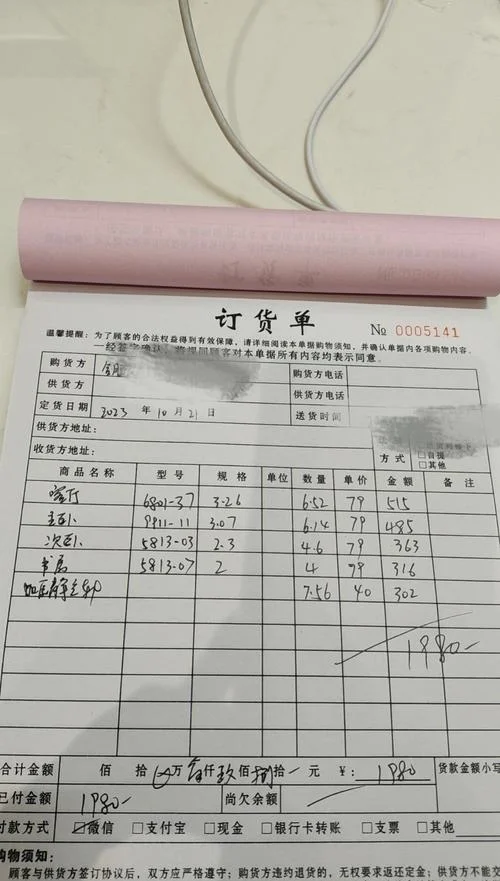 订货单
№ 0005141
温馨提醒：为了顾客的合法权益得到有效保障，请详细阅读本单据购物须知，并确认单据内各项购物内容，
一经签字确认，将视同顾客对本单据所有内容均表示同意。
购货方 购货方电话
供货方 供货方电话
定货日期 2023 年 10 月 21 日 送货时间
供货方地址：
收货方地址： 方式 □自提 □其他
商品名称 型号 规格 单位 数量 单价 金额 备注
客厅 6801-37 3.26 6.52 79 515
主卧 9911-11 3.07 6.14 79 485
次卧 5813-03 2.3 4.6 79 363
书房 5813-07 2 4 79 316
静音轨 7.56 40 302
1980-
合计金额 佰 拾 万 仟 玖 佰 捌 拾 元 ¥： 1980 货款金额小写
已付金额 1980- 尚欠余额
付款方式 ☑微信 □支付宝 □现金 □银行卡转账 □支票 □其他
购物须知：
顾客与供货方签订协议后，双方应严格遵守；购货方违约退货的，无权要求返还定金；供货方不能交